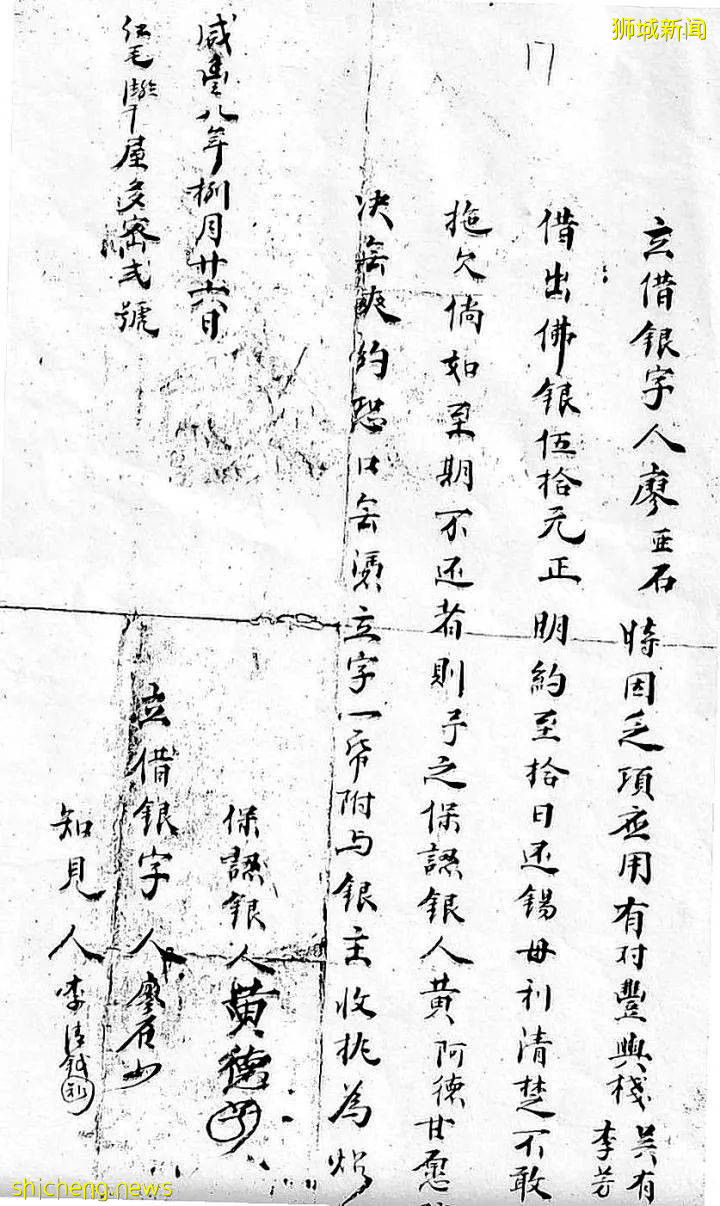 狮城新闻
17
立借銀字人廖亞石時因乏項應用有对豐興棧吴有
李芳
借出佛銀伍拾元正明約至拾日还錫母利清楚不敢
拖欠倘如至期不还者則予之保認銀人黄阿德甘愿
决無爽約恐口無憑立字一帋附与銀主收执為炤
保認銀人黄德
立借銀字人廖石
知見人李清
咸豊八年捌月廿六日
仁毛
屋多密弍號
shicheng.news